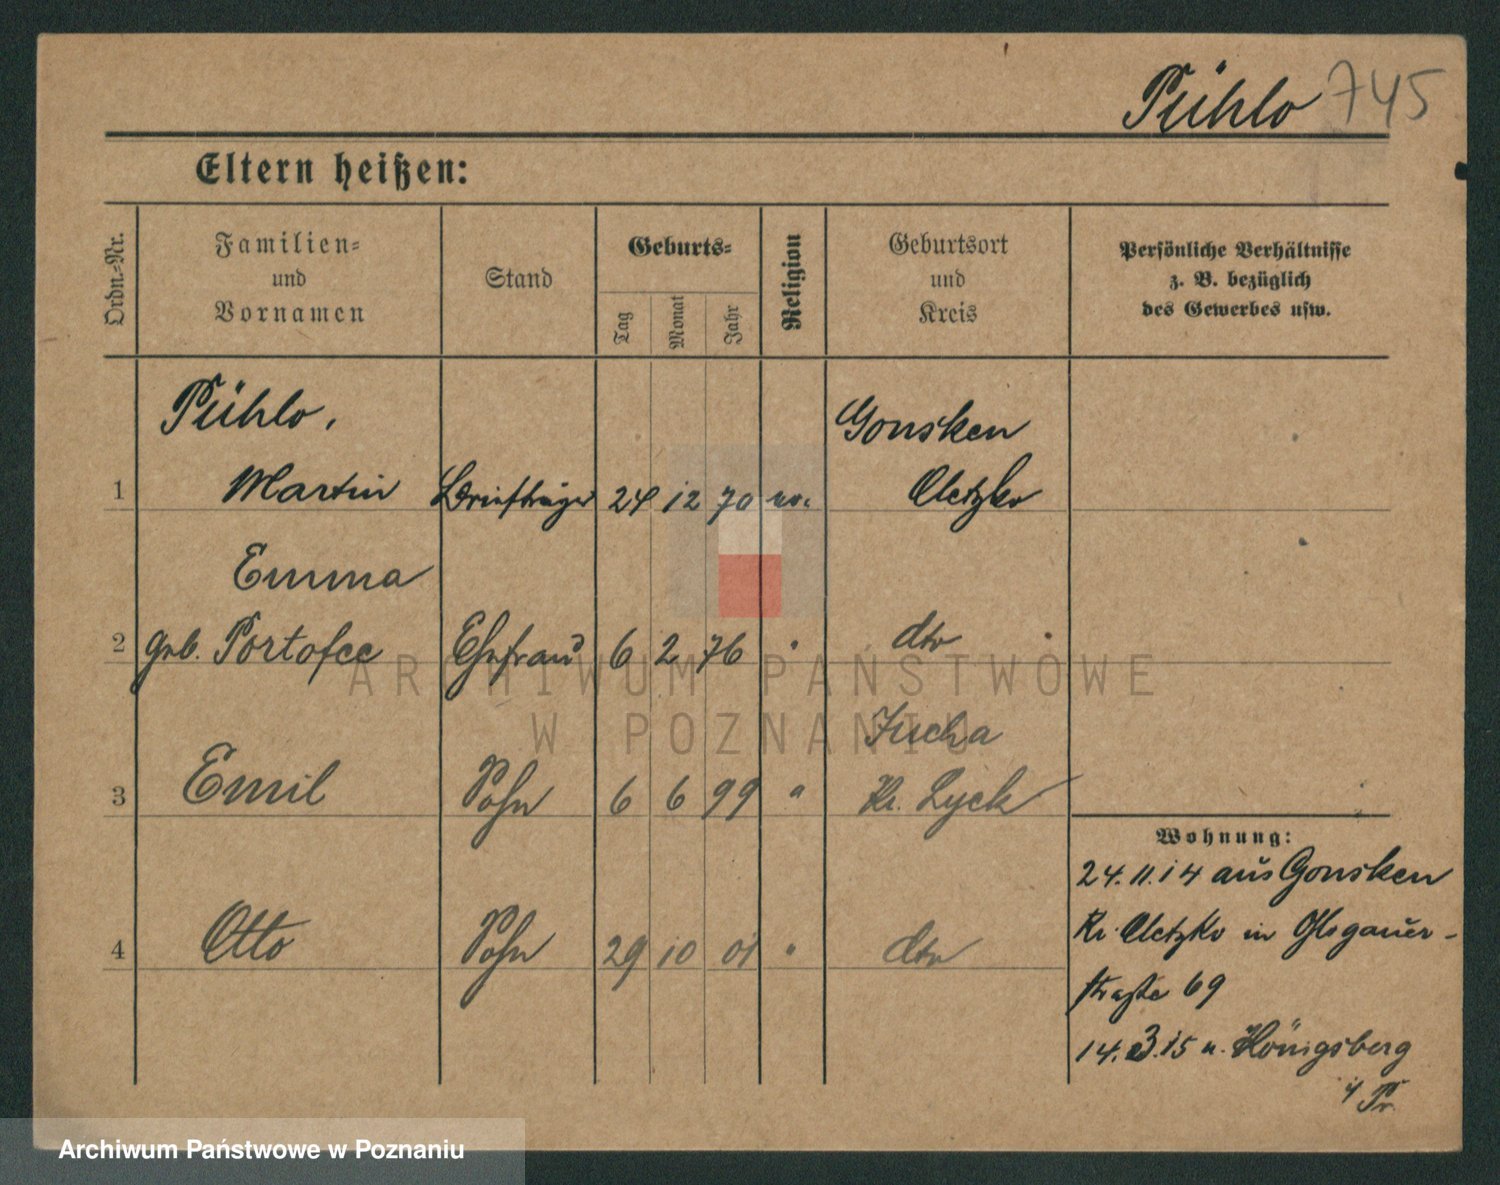 Pühlo 745
Eltern heißen:
Ordn.-Nr.
Familien-
und
Vornamen
Stand
Geburts-
Tag
Monat
Jahr
Religion
Geburtsort
und
Kreis
Persönliche Verhältnisse
z. B. bezüglich
des Gewerbes usw.
Pühlo,
Gonsken
1 Martin Briefträger 24 12 70 ev. Oletzko
Emma
2 geb. Portofee Ehefrau 6 2 76 " dto
Jucha
3 Emil Sohn 6 6 99 " Kr. Lyck
4 Otto Sohn 29 10 01 " dto
Wohnung:
24.11.14 aus Gonsken
Kr. Oletzko in Glogauer-
straße 69
14.3.15 n. Königsberg
i/Pr.
ARCHIWUM PAŃSTWOWE
W POZNANIU
Archiwum Państwowe w Poznaniu